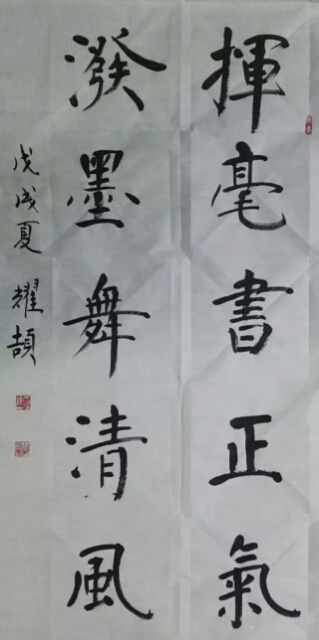 揮毫書正氣
潑墨舞清風
戊戌夏 耀頡